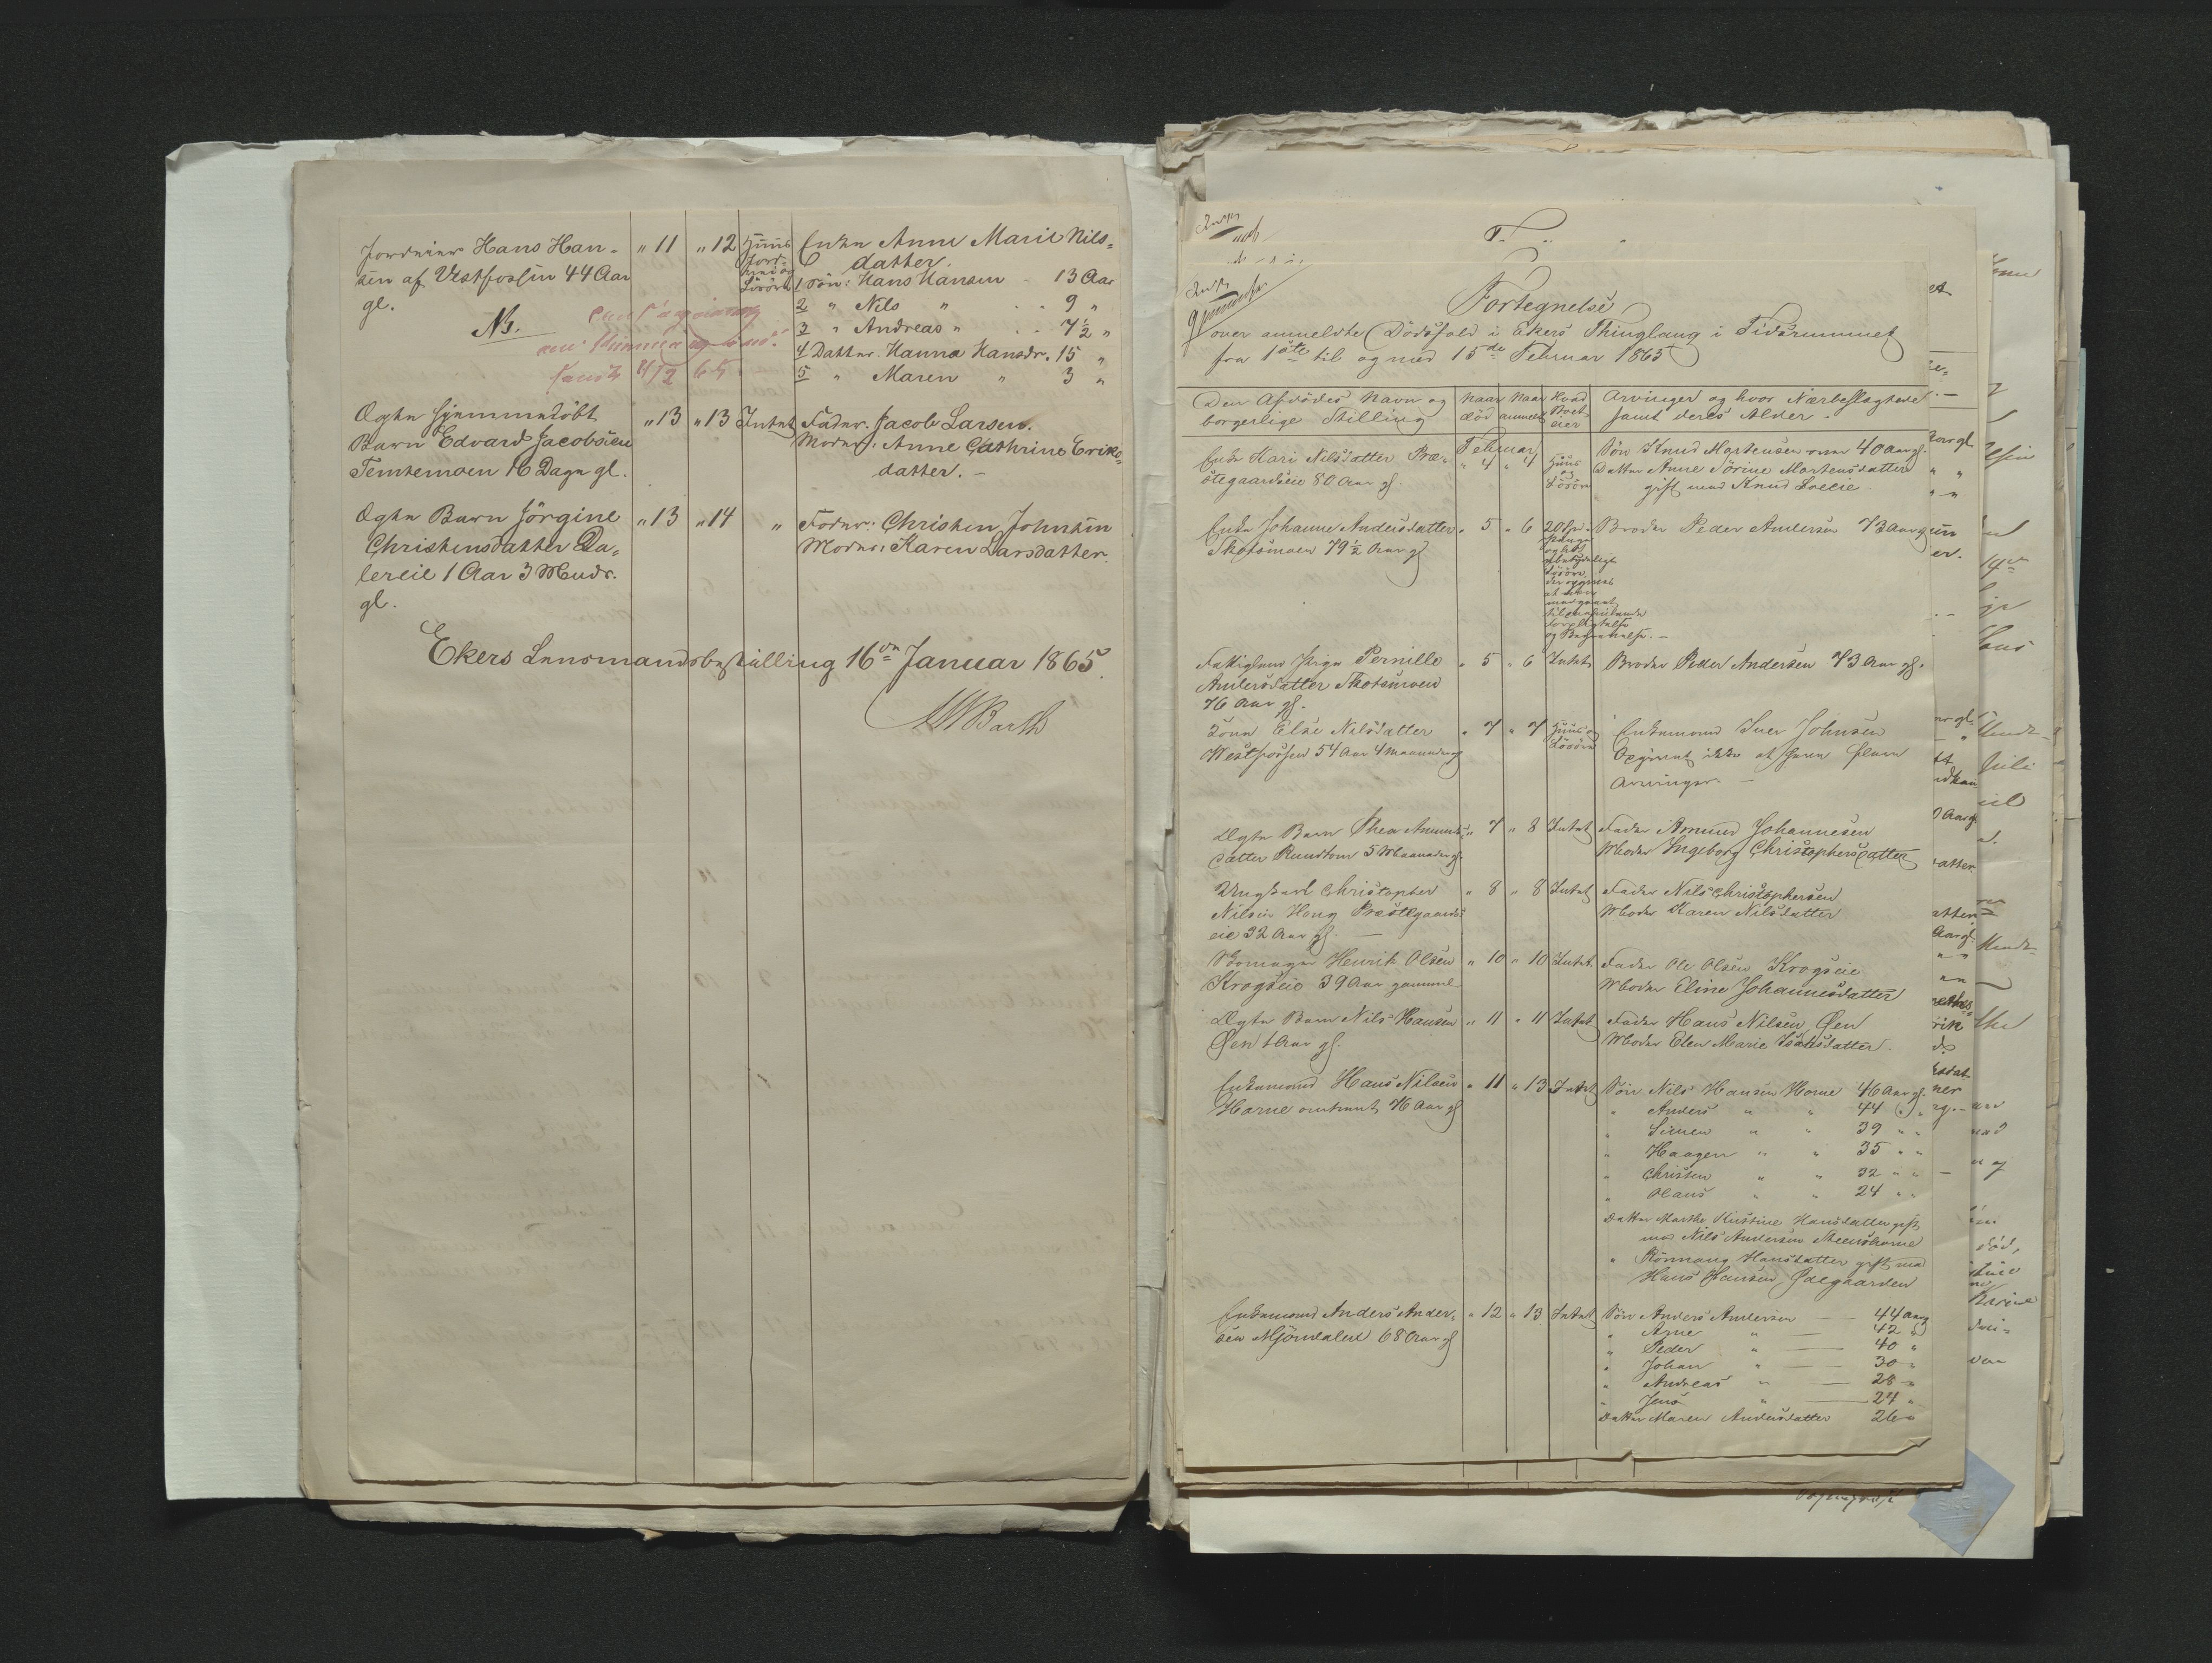 Jordeier Hans Han- " 11 " 12 Huus Enken Anne Marie Nils-
sen af Vestfossen 44 Aar Jord- datter.
gl. Løsøre 1 Søn: Hans Hansen - 13 Aar
2 " Nils " 9 "
3 " Andreas " 7½ "
4 Datter. Hanna Hansdr. 15 "
5 " Maren " 3 "
NB.
4/2 65
Ægte hjemmedöbt " 13 " 13 Intet Fader. Jacob Larsen.
Barn Edvard Jacobsen Moder: Anne Cathrine Eriks-
Temtemoen 16 Dage gl. datter. -
Ægte Barn Jörgine " 13 " 14 " Fader: Christen Johnsen
Christensdatter Da- Moder: Karen Larsdatter.
lereie 1 Aar 3 Mndr.
gl.
Ekers Lensmandsbestilling 16de Januar 1865.
Barth
Fortegnelse
over anmeldte Dödsfald i Ekers Thinglaug i Tidsrummet
fra 1ste til og med 15de Februar 1865
Den Afdödes Navn og Naar Naar Hvad Arvinger og hvor Nærbeslægtede
borgerlige Stilling død anmeldt Boet eier samt deres Alder.
Februar
Enke Kari Nilsdatter Præ- " 4 " 4 Huus og Løsøre Søn Knud Mortensen over 40 Aar gl.
stegaardseie 80 Aar gl. Datter Anne Sörine Mortensdatter
gift med Knud
Enke Johanne Andersdatter " 5 " 6 20 Spd. Broder Peder Andersen 73 Aar gl
Skotsmoen 79½ Aar gl
ubetydeligt
Løsøre
og Begravelse. -
Fattiglem Pige Pernille " 5 " 6 Intet Broder Peder Andersen 73 Aar gl.
Andersdatter Skotsmoen
76 Aar gl.
Kone Else Nilsdatter " 7 " 7 Huus og Løsøre Enkemand Iver Johnsen
Westfossen 54 Aar 4 Maaneder gl Opgivet ikke at have flere
Arvinger. -
Ægte Barn Thea Amunds- " 7 " 8 Intet Fader Amund Johannesen
datter Rundtom 5 Maaneder gl. Moder Ingeborg Christophersdatter
Ungkarl Christopher " 8 " 8 Intet Fader Nils Christophersen
Nilsen Houg Præstegaards- Moder Karen Nilsdatter
eie 32 Aar gl. -
Skomager Henrik Olsen " 10 " 10 Intet Fader Ole Olsen Krogseie
Krogseie 39 Aar gammel Moder Eline Johannesdatter
Ægte Barn Nils Hansen " 11 " 11 Intet Fader Hans Nilsen Øen
Øen 1 Aar gl. Moder Elen Marie Isaksdatter.
Enkemand Hans Nilsen " 11 " 13 Intet Søn Nils Hansen Horne 46 Aar gl.
Horne omtrent 76 Aar gl " Anders " " 44 "
" Simen " " 39 " "
" Haagen " " 35 " "
" Christen " " 32 " "
" Olaus " " 24 " "
Datter Marthe Kirstine Hansdatter gift
med Nils Andersen Steenshorne
" Rönnaug Hansdatter gift med
Hans Hansen Ødegaarden
Enkemand Anders Ander- " 12 " 13 Intet Søn Anders Andersen - - 44 Aar gl
sen Mjöndalen 68 Aar gl " Arne " - 42 "
" Peder " - 40 "
" Johan " - 30 "
" Andreas " - 28 "
" Jens " - 24 "
Datter Maren Andersdatter 26 "